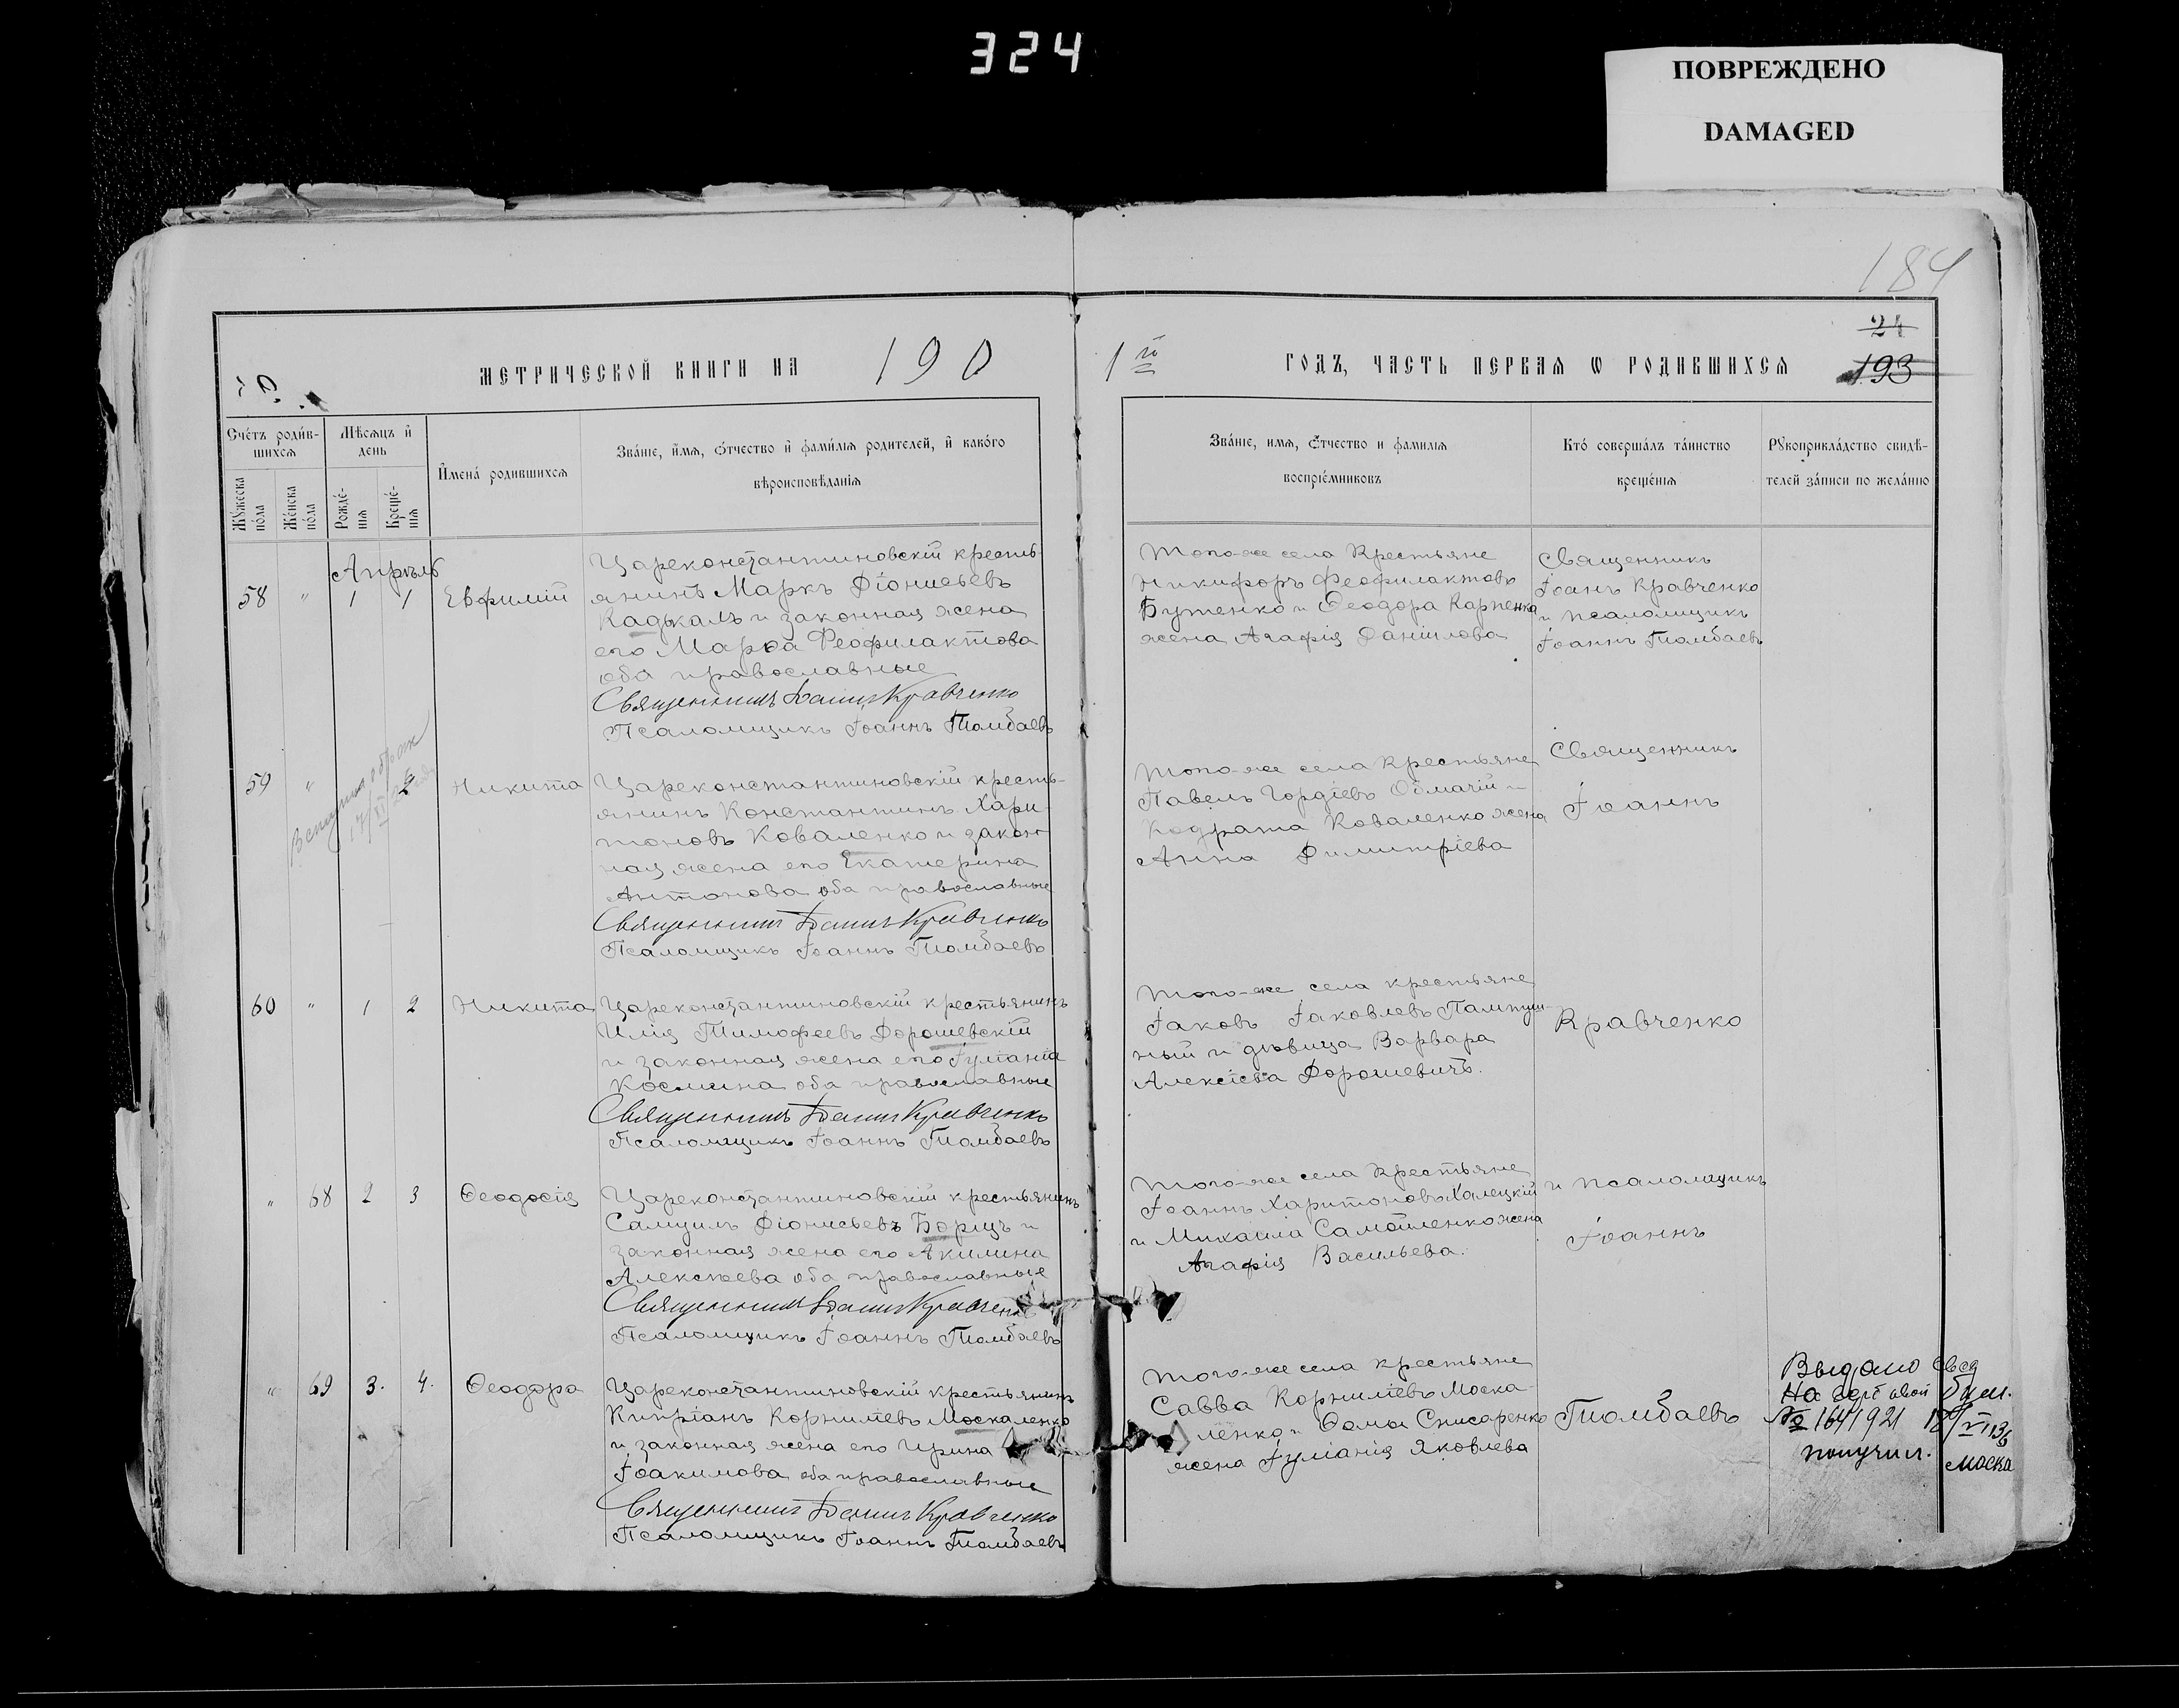 324
ПОВРЕЖДЕНО
DAMAGED
184
24
193
МЕТРИЧЕСКОЙ КНИГИ НА 190
1й ГОДЪ, ЧАСТЬ ПЕРВАЯ Ѡ РОДИВШИХСЯ
Счетъ родив-
шихся
Мужеска пола
Женска пола
Мѣсяцъ и
день
Рожде-
нія
Креще-
нія
Имена родившихся
Званіе, имя, отчество и фамилія родителей, и какого
вѣроисповѣданія
Званіе, имя, отчество и фамилія
воспріемниковъ
Кто совершалъ таинство
крещенія
Рукоприкладство свидѣ-
телей записи по желанію
Апрѣль
58 " 1 1 Евфимій
Цареконстантиновскій кресть-
янинъ Маркъ Діонисьевъ
Кадькалъ и законная жена
его Марѳа Феофилактова
оба православные
Священникъ Іоаннъ Кравченко
Псаломщикъ Іоаннъ Тіомбаевъ
Того-же села Крестьяне
Никифоръ Феофилактовъ
Бутенко и Ѳеодора Карпенка
жена Агафія Даніилова
Священникъ
Іоанъ Кравченко
и псаломщикъ
Іоаннъ Тіомбаевъ
59 " 2 Никита
Цареконстантиновскій кресть-
янинъ Константинъ Хари-
тоновъ Коваленко и закон
ная жена его Екатерина
Антонова оба православные
Священникъ Іоаннъ Кравченко
Псаломщикъ Іоаннъ Тіомбаевъ
Того-же села Крестьяне
Павелъ Гордіевъ и
Кодрата Коваленко жена
Анна Димитріева
Священникъ
Іоаннъ
60 " 1 2 Никита
Цареконстантиновскій крестьянинъ
Илія Тимофеевъ Дорошевскій
и законная жена его Іуліанія
Космина оба православные
Священникъ Іоаннъ Кравченко
Псаломщикъ Іоаннъ Тіомбаевъ
Того-же села крестьяне
Іаковъ Іаковлевъ
ный и дѣвица Варвара
Алексіева Дорошевичъ.
Кравченко
" 68 2 3 Ѳеодосія
Цареконстантиновскій крестьянинъ
Самуилъ Діонисьевъ Борщъ и
законная жена его Акилина
Алексѣева оба православные
Священникъ Іоаннъ Кравченко
Псаломщикъ Іоаннъ Тіомбаевъ
Того-же села Крестьяне
Іоаннъ Харитоновъ Халецкій
и Михаила Самойленко жена
Агафія Васильева.
и псаломщикъ
Іоаннъ
" 69 3. 4. Ѳеодора
Цареконстантиновскій крестьянинъ
Кипріанъ Корниліевъ Москаленко
и законная жена его Ирина
Іоакимова оба православные
Священникъ Іоаннъ Кравченко
Псаломщикъ Іоаннъ Тіомбаевъ
Того-же села крестьяне
Савва Корниліевъ Моска-
ленко и Ѳомы Списаренко
жена Іуліанія Яковлева
Тіомбаевъ
Выдано
№ 164/921
получил.
Моска